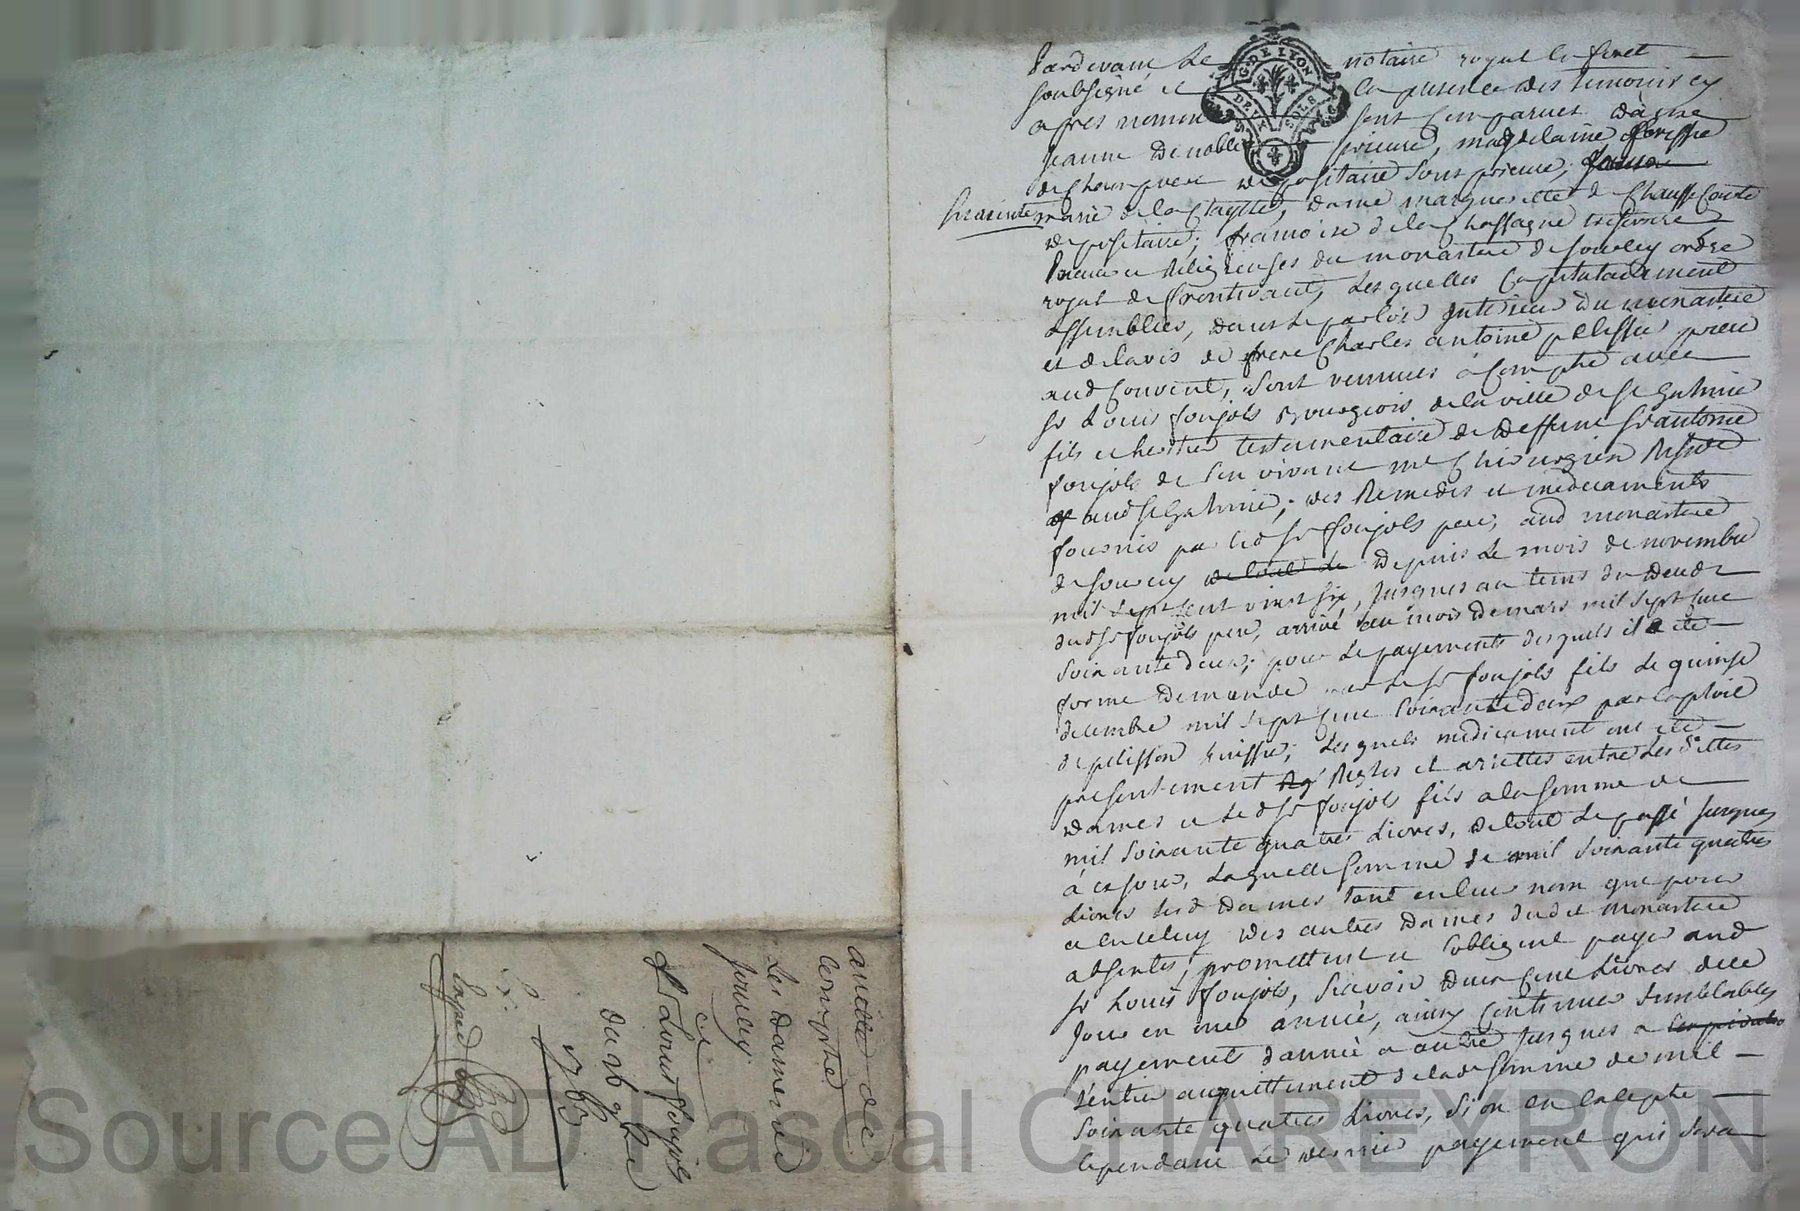 Pardevant Le notaire royal
soubsigné et En presence des temoins cy
apres nommé sont Comparues dame
Jeanne Denoble prieure, magdelaine
De Champ depositaire Sous prieure,
marie de la dame margueritte de Chauffecourte
depositaire; francoise de la Chassagne
Religieuses du monastere de jourcey ordre
royal de frontevaut, Lesquelles Capitulairement
assemblées, dans Le parloir Interieur Du monastere
et de lavis de frere Charles antoine pelissie prieur
aud Couvent, Sont venues à Compte avec
Sr Louis foujols Bourgeois de la ville de St Galmie
fils et heritier testamentaire de Deffunt Sr antoine
foujols de Son vivant me Chirurgien
aud St Galmie; des Remedes et medicaments
fournis par led Sr foujols pere, aud monastere
de jourcey Depuis Le mois de novembre
mil Sept Cent vint six, Jusques au tems du
dud Sr foujols pere, arrivé au mois de mars mil Sept Cent
Soixante deux; pour Le payements desquels il a eté
formé Demande Sr foujols fils Le quinze
decembre mil Sept Cent Soixante deux par Exploit
de pelisson huissie; Lesquels medicament ont eté
presentement Regles et arrettes entre Les dittes
dames et Led Sr foujols fils a la Somme de
mil Soixante quatres Livres, de tout Le passé Jusques
à ce jour, Laquelle Somme de mil Soixante quatres
Livres Lesd Dames tant en leur nom que pour
a Celuy des autres Dames dudit monastere
absentes, promettent et Sobligent payer aud
Sr Louis foujols, Scavoir deux Cent Livres dece
Jour en une année, ainsy Continuer Semblables
payement d'année a autre Jusques a
Lentier acquittement de lad Somme de mil
Soixante quatres Livres, Si on En Excepte
Cependant Le dernie payement quis Sera
arreté de
Compte
Les Dames de
Jourcey
et
Sr Louis foujols
Du 26 9bre
1763
G.DE LYON